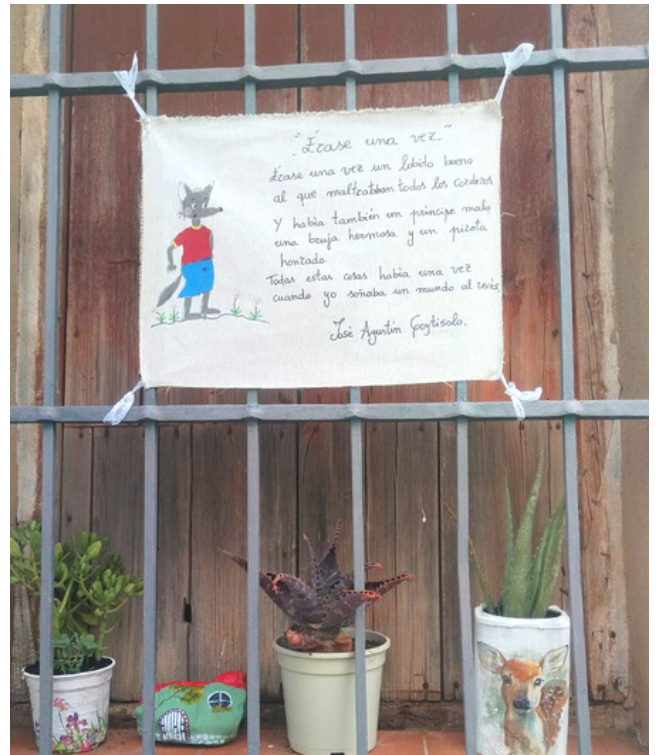 "Érase una vez."
Érase una vez un lobito bueno
al que maltrataban todos los corderos
Y había también un príncipe malo
una bruja hermosa y un pirata
honrado.
Todas estas cosas había una vez
cuando yo soñaba un mundo al revés
José Agustín Goytisolo.